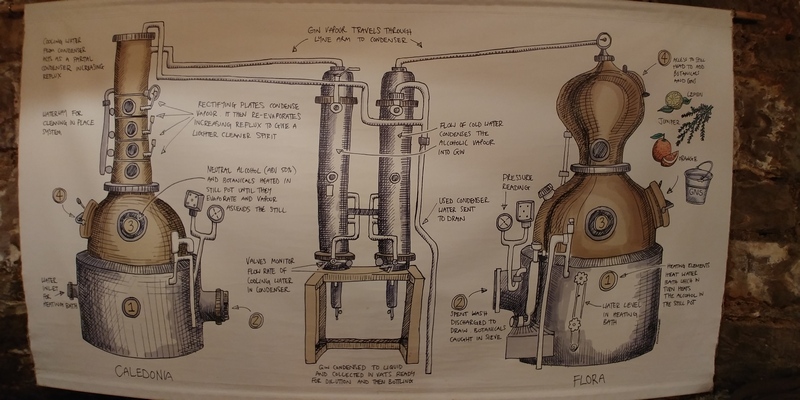 COOLING WATER
FROM CONDENSER
ACTS AS A PARTIAL
CONDENSER INCREASING
REFLUX
GIN VAPOUR TRAVELS THROUGH
LYNE ARM TO CONDENSER
4
ACCESS TO STILL
HEAD TO ADD
BOTANICALS
AND GNS
LEMON
JUNIPER
ORANGE
GNS
WATERWAY FOR
CLEANING IN PLACE
SYSTEM
RECTIFYING PLATES CONDENSE
VAPOUR & THEN RE-EVAPORATES
INCREASING REFLUX TO GIVE A
LIGHTER CLEANER SPIRIT
FLOW OF COLD WATER
CONDENSES THE
ALCOHOLIC VAPOUR
INTO GIN
NEUTRAL ALCOHOL (ABV 50%)
AND BOTANICALS HEATED IN
STILL POT UNTIL THEY
EVAPORATE AND VAPOUR
ASCENDS THE STILL
4
3
PRESSURE
READING
3
USED CONDENSER
WATER SENT
TO DRAIN
VALVES MONITOR
FLOW RATE OF
COOLING WATER
IN CONDENSER
WATER
INLET
FOR
HEATING BATH
1
2
2
SPENT WASH
DISCHARGED TO
DRAIN BOTANICALS
CAUGHT IN SIEVE
1
HEATING ELEMENT
HEAT WATER
BATH WHICH IN
TURN HEATS
THE ALCOHOL IN
THE STILL POT
WATER LEVEL
IN HEATING
BATH
GIN CONDENSED TO LIQUID
AND COLLECTED IN VATS READY
FOR DILUTION AND THEN BOTTLING
CALEDONIA
FLORA